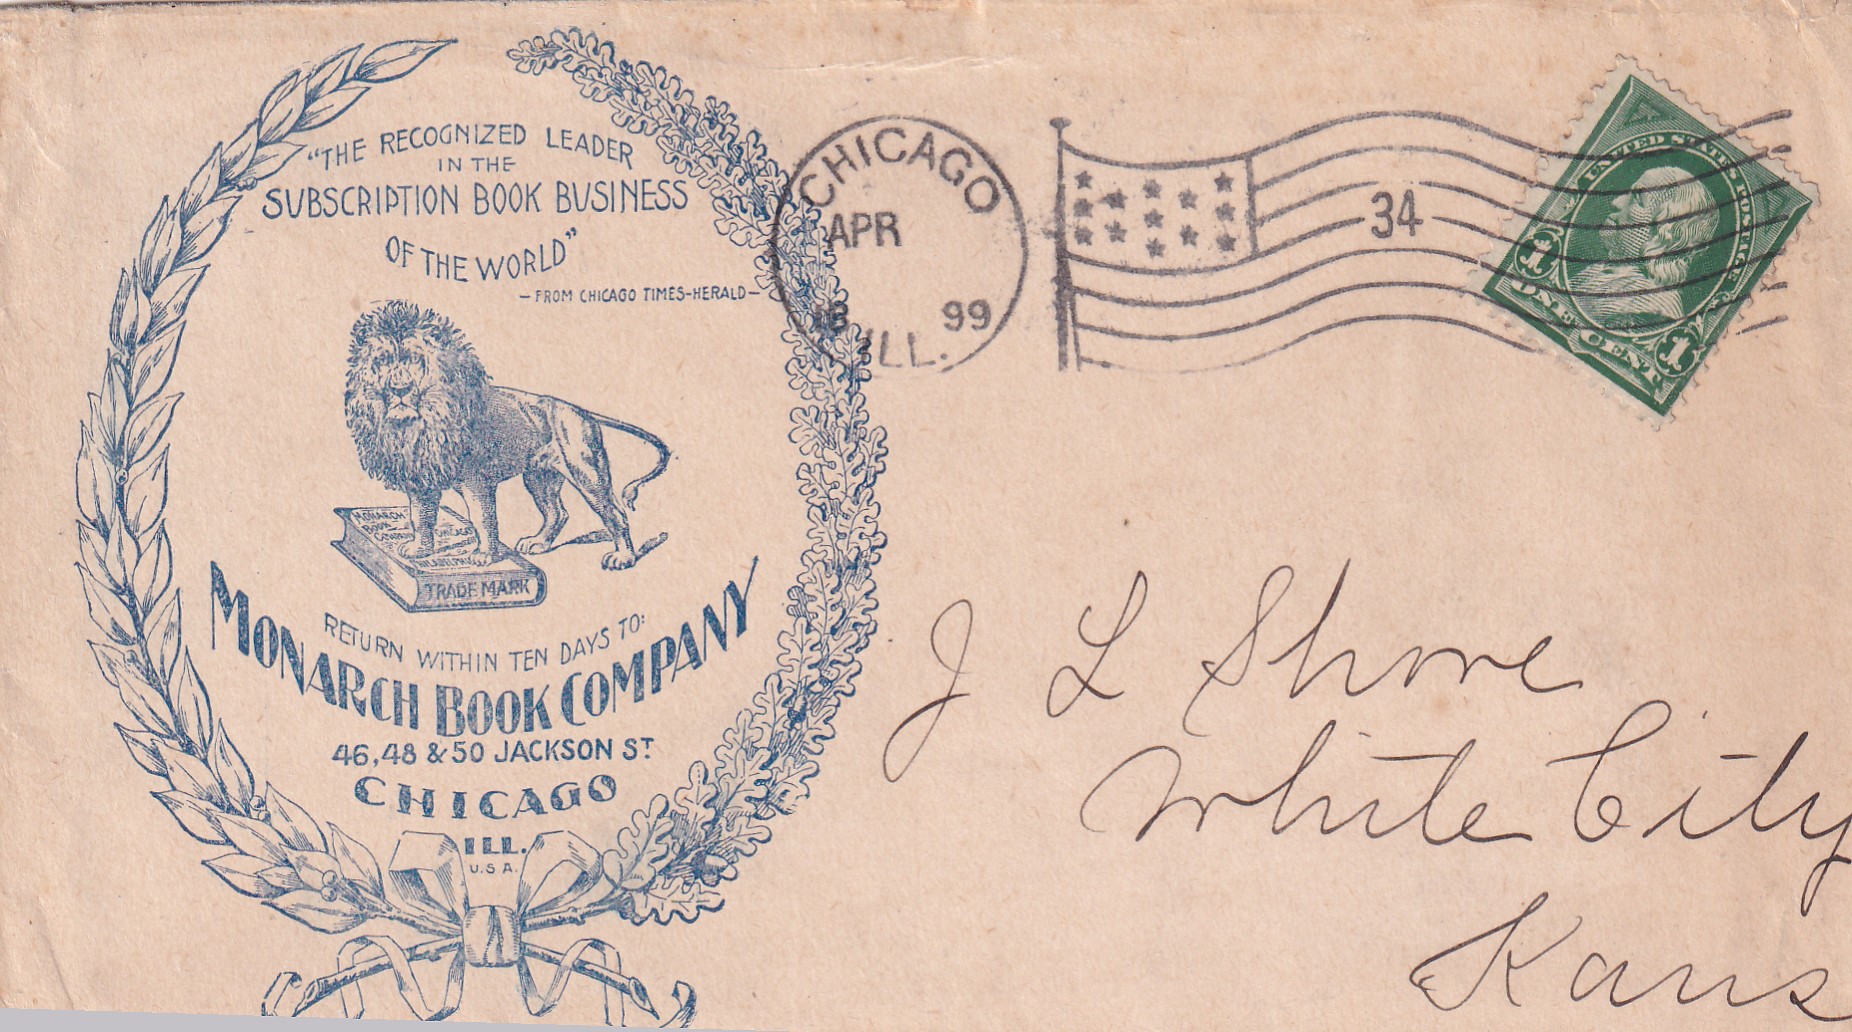 "THE RECOGNIZED LEADER
IN THE
SUBSCRIPTION BOOK BUSINESS
OF THE WORLD"
— FROM CHICAGO TIMES-HERALD —
MONARCH
BOOK
CHICAGO
TRADE MARK
RETURN WITHIN TEN DAYS TO:
MONARCH BOOK COMPANY
46, 48 & 50 JACKSON ST
CHICAGO
ILL.
U.S.A.
CHICAGO
APR
99
ILL.
34
UNITED STATES POSTAGE
1 1
ONE CENT
J L Shore
White City
Kans